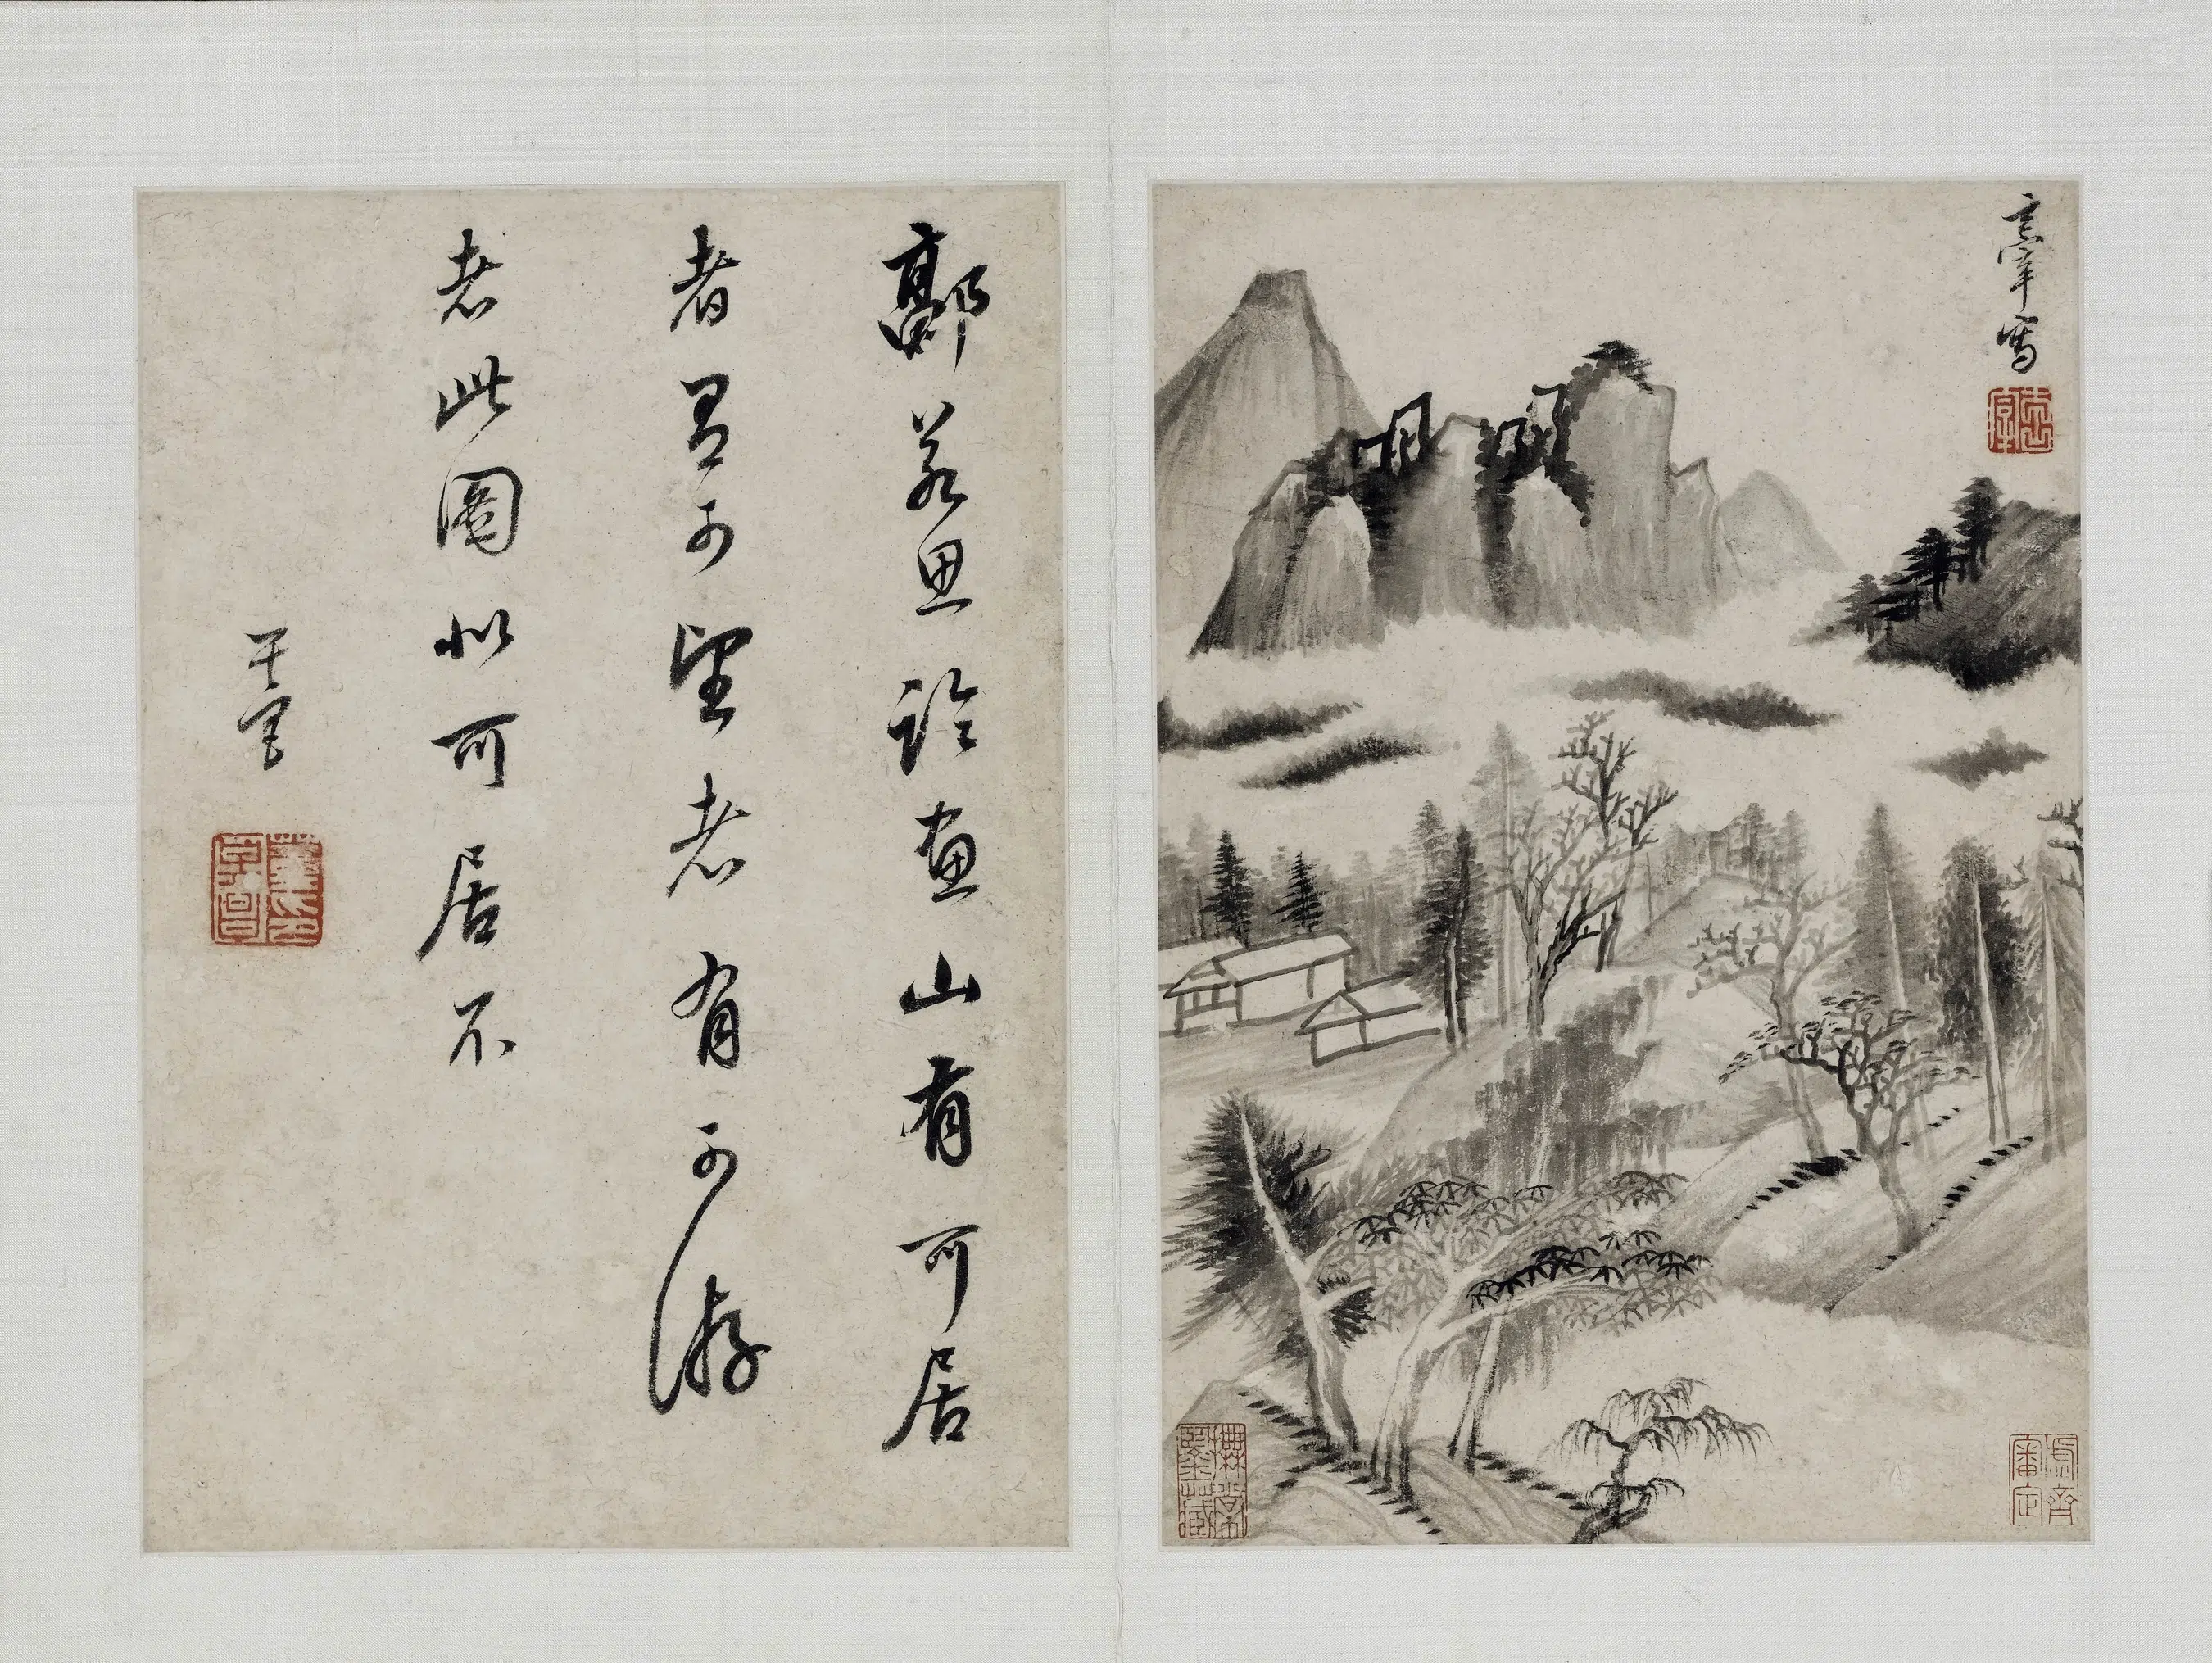 玄宰寫
郭若思論畫山有可居
者有可望者有可游
者此圖似可居不
玄宰